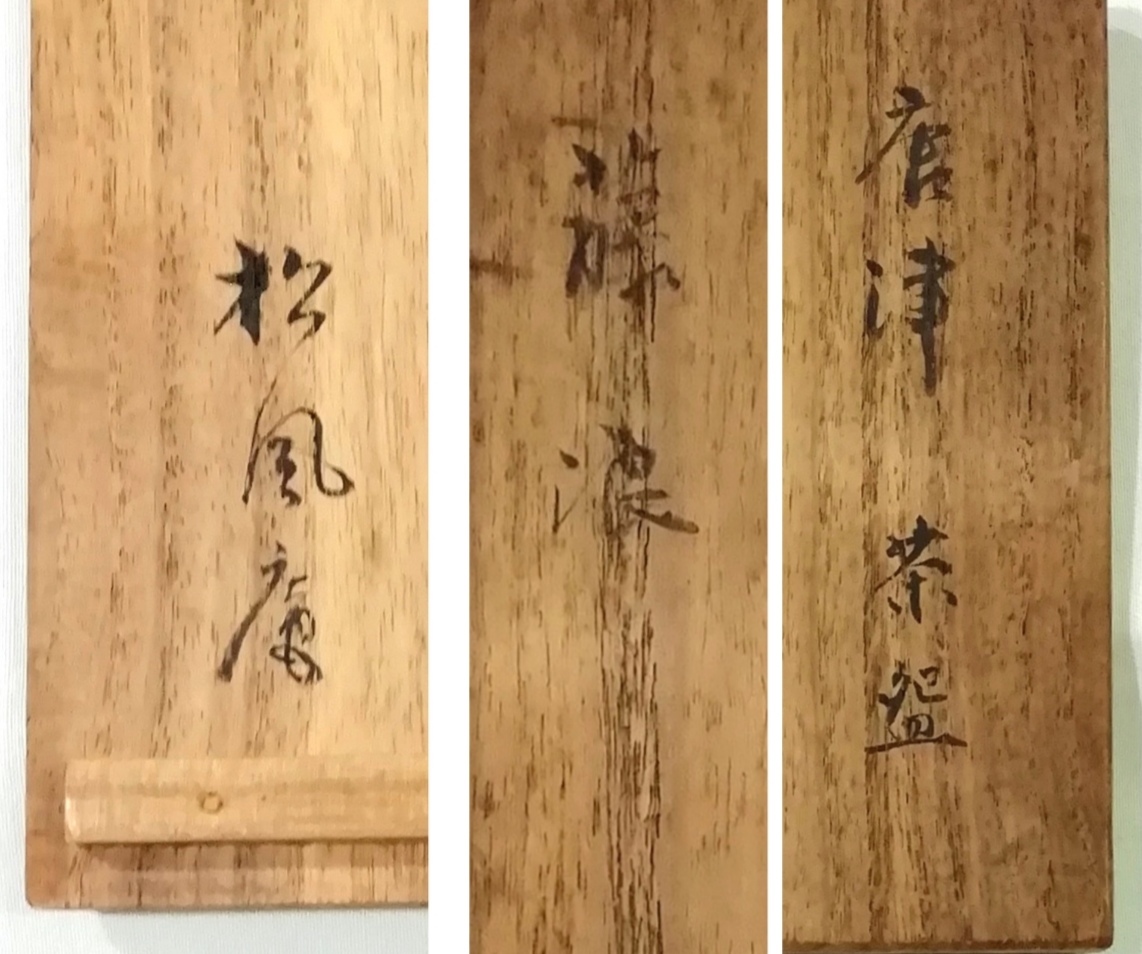 唐津 茶盌
藤浪
松風庵